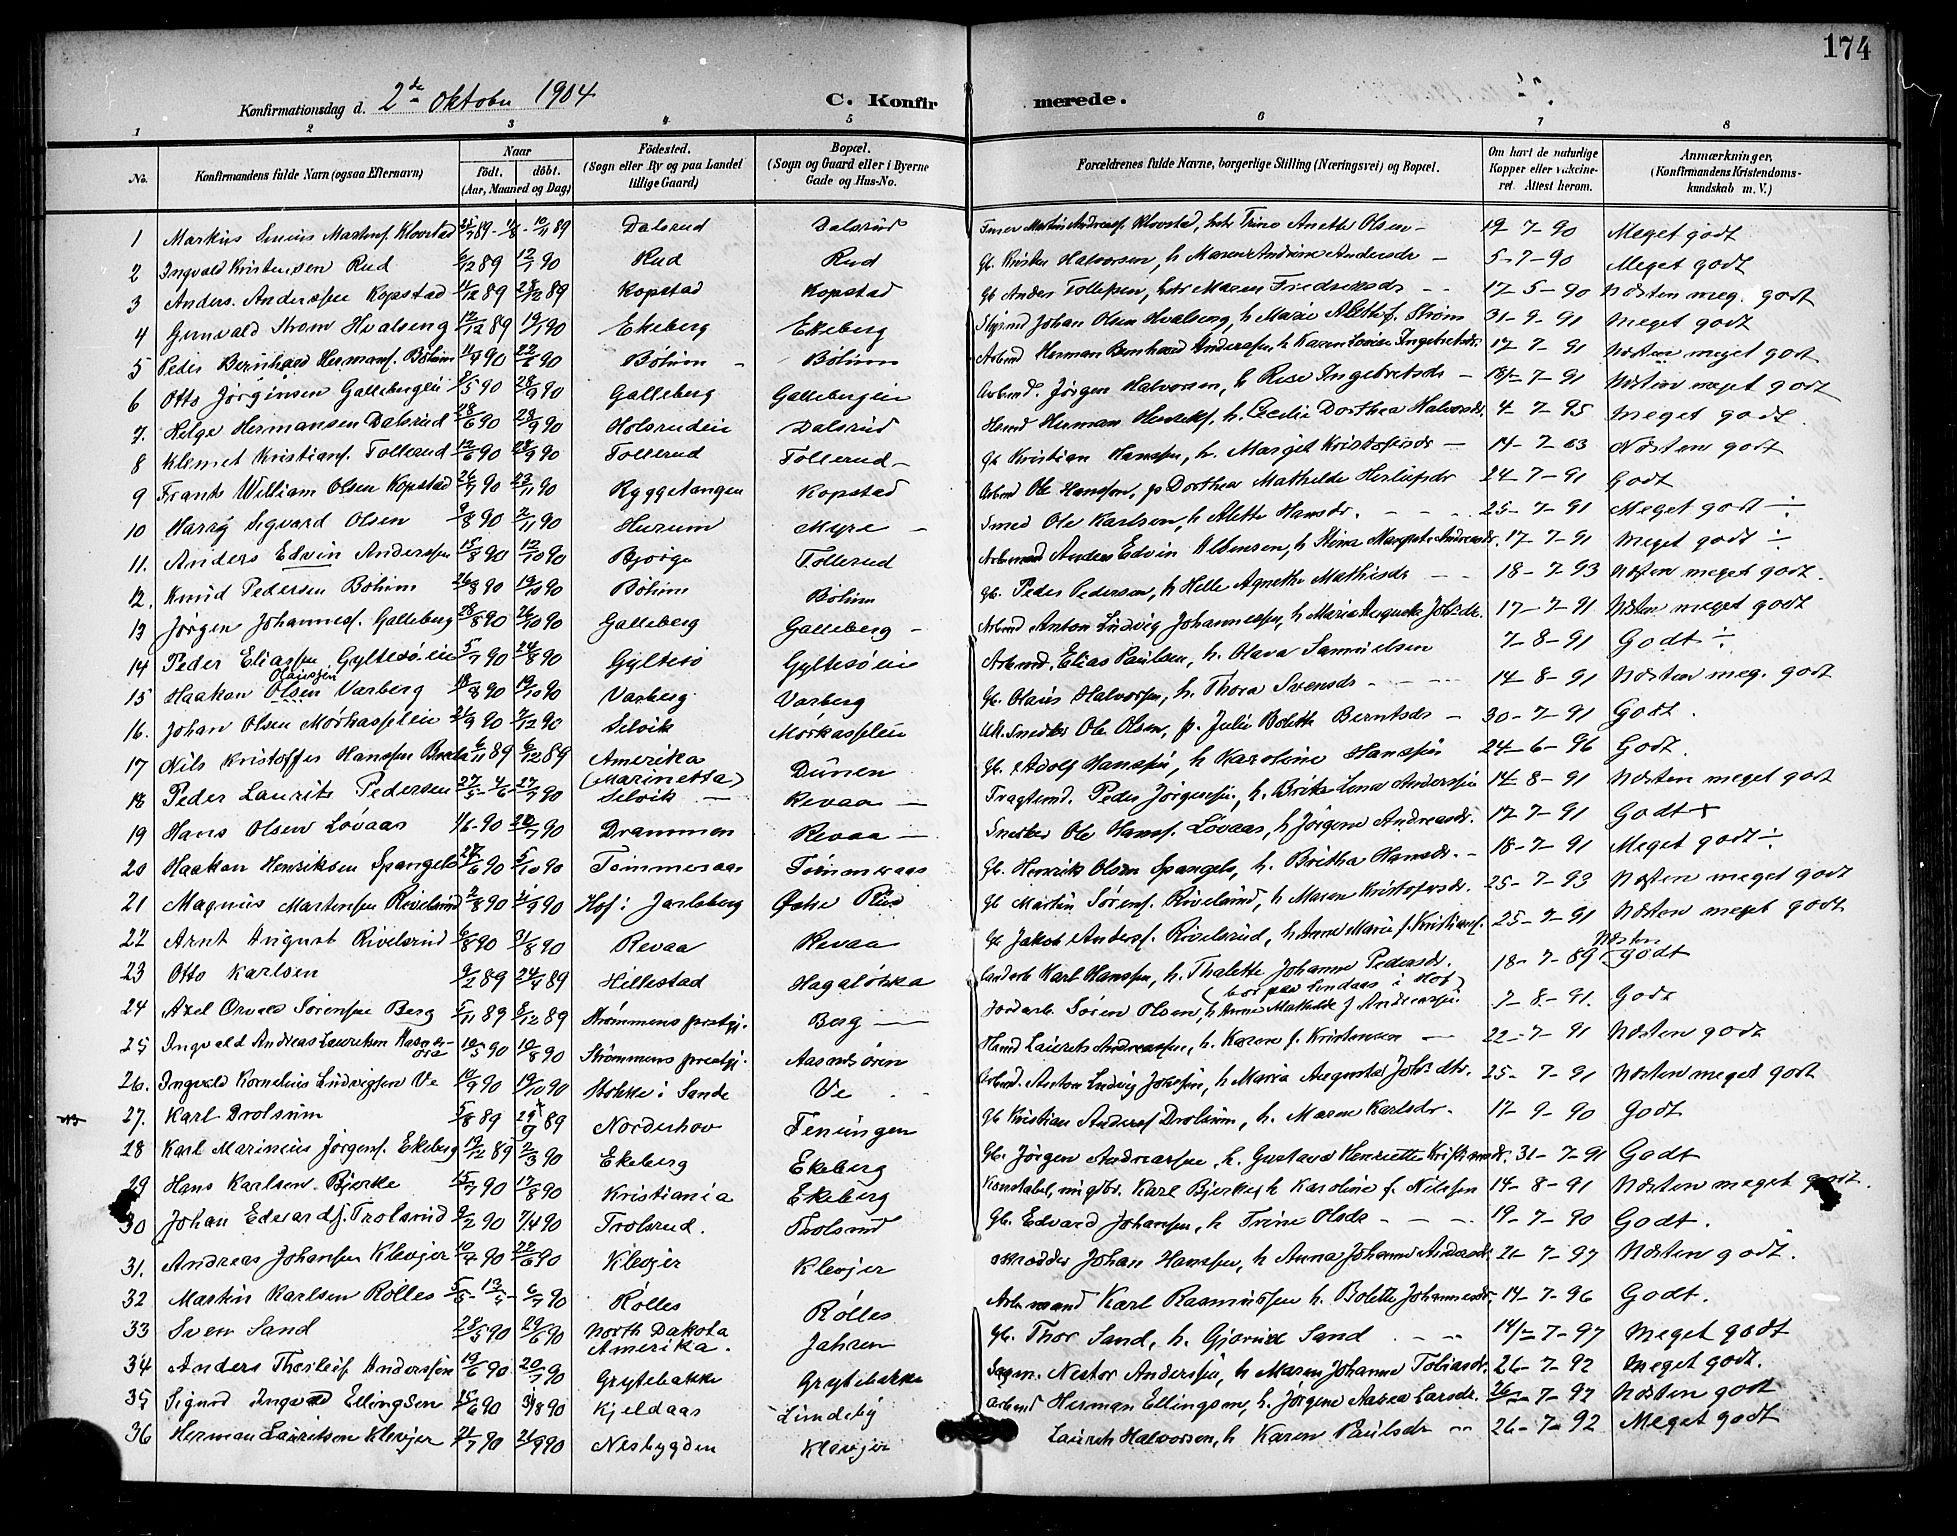 174
Konfirmationsdag d. 2de Oktober 1904 C. Konfirmerede.
1 2 3 4 5 6 7 8
No. Konfirmandens fulde Navn (ogsaa Efternavn) Naar födt. döbt. (Aar, Maaned og Dag) Födested. (Sogn eller By og paa Landet tillige Gaard) Bopæl. (Sogn og Gaard eller i Byerne Gade og Hus-No. Forældrenes fulde Navne, borgerlige Stilling (Næringsvei) og Bopæl. Om havt de naturlige Kopper eller vakcineret. Attest herom. Anmærkninger. (Konfirmandens Kristendomskundskab m. V.)
1 Markus Martinsf. Klovstad 89 89 Dalsrud Dalsrud Martin Andreasf. Klovstad, Trine Anette Olsen 19-7-90 Meget godt
2 Ingvald Kristensen Rud 6/12 89 12/1 90 Rud Rud Gb. Kristen Halvorsen, h Maren Andrine Andersdr 5-7-90 Meget godt
3 Anders Anderssen Kopstad 11/12 89 28/12 89 Kopstad Kopstad Gb Anders Tollefsen, Maren Fredriksdr 17-5-90 Næsten meg. godt
4 Gunvald Strøm Hvalseng 12/12 89 19/1 90 Ekeberg Ekeberg Johan Olsen Hvalseng, h Marie Alette f. Strøm 31-9-91 Meget godt
5 Peder Bernhard Hermansf. Böhim 90 90 Böhim Böhim Arbmd Herman Bernhard Anderssen, h Karen Lovise Ingebretsdr. 17-7-91 Næsten meget godt
6 Otto Jörginsen Gallebergeie 5/5 90 28/9 90 Galleberg Gallebergeie Arbmd. Jörgen Halvorsen, h Rise Ingebretsdr 18/-7-91 Næsten meget godt
7. Helge Hermansen Dalsrud 28/6 90 29/9 90 Holsrudeie Dalsrud Hmd Herman Henriksf. h. Cecilie Dorthea Halvorsdr. 4-7-95 Meget godt.
8 Klemet Kristiansf. Tollerud 12/6 90 28/9 90 Tollerud Tollerud Gb Kristian Hanssen, h. Margit Kristofersdr 14-7-03 Næsten godt
9 Frants William Olsen Kopstad 26/7 90 23/11 90 Ryggetangen Kopstad Arbmd Ole Hanssen, p Dorthea Mathilde 24-7-91 Godt
10 Harry Sigvard Olsen 9/8 90 2/11 90 Hurum Myre Smed Ole Karlsen, h Alette Hansdr. 25-7-91 Meget godt ÷
11. Anders Edvin Anderssen 15/8 90 12/10 90 Bjorge Tollerud Arbmand Anders Edvin h Stina Margrete Andreasdr. 17-7-91 Meget godt ÷
12. Knud Pedersen Böhim 26/8 90 19/10 90 Böhim Böhim Gb. Peder Pedersen, h Helle Agnethe Mathisdr 18-7-93 Næsten meget godt.
13 Jörgen Johannesf. Galleberg 28/8 90 26/10 90 Galleberg Galleberg Arbmd Anton Ludvig Johannessen, h Maria Augusta Johsdr. 17-7-91 Næsten meget godt
14 Peder Eliassen Gyltesöeie 5/7 90 24/8 90 Gyltesö Gyltesöeie Arbmd. Elias Paulsen, h. Olava Samuelsen 7-8-91 Godt ÷
15 Haakon Olsen Olaussen Varberg 18/8 90 19/10 90 Varberg Varberg Gb. Olaus Halvorsen, h. Thora Svensdr 14-8-91 Næsten meg. godt
16. Johan Olsen Mörkasseleie 21/9 90 7/12 90 Selvik Mörkasseleie Snedker Ole Olsen, p. Julie Bolette Berntsdr 30-7-91 Godt.
17 Nils Kristoffer Hanssen 6/11 89 6/12 89 Amerika (Marinetta) Dünen Gb. Adolf Hanssen, h Karoline Hanssen 24-6-96 Godt.
18 Peder Laurits Pedersen 27/5 - 4/6 - 27/7 90 Selvik Revaa Fragtemd. Peder Jörgenssen, h. Lena Anderssen 14-8-91 Næsten meget godt
19 Hans Olsen Lövaas 1/6-90 20/7 90 Drammen Revaa Snedker Ole Hansf. Lövaas, h Jörgine Andreasdr. 17-7-91 Godt +
20 Haakon Henriksen Spangelo 27/6 90 5/10 90 Tömmeraas Tömmeraas Gb. Henrik Olsen Spangelo, h. Britha Hansdr. 18-7-91 Meget godt ÷
21 Magnus Martinsen Rivelsrud 2/8 90 90 Hof i Jarlsberg Gb Martin Sörensf. Rivelsrud, h Maren Kristofersdr. 25-7-93 Næsten meget godt
22 Arnt August Rivelsrud 6/8 90 31/8 90 Revaa Revaa Gb Jakob Andersf. Rivelsrud, h Anne Marie f. Kristiansf. 25-7-91 Næsten meget godt
23 Otto Karlsen 9/2 89 24/4 89 Hillestad Hagalökka Karl Hanssen, h. Thalette Johanne Pedersdr. (bor paa Lindaas i Hof) 18-7-89 Næsten godt
24 Axel Orvald Sörenssen Berg 5/11 89 8/12 89 Strømmens prestgj. Berg Jordarb. Sören Olsen, h Anne Mathilde f Andreassen 7-8-91. Godt
25 Ingvald Andreas Lauritsen 10/5 90 10/8 90 Strömmens prestgj. Aasandsören Hmd Laurits Andreassen, h. Karen f. Kristensen 22-7-91 Næsten godt
26. Ingvald Kornelius Ludvigsen Ve 14/9 90 19/10 90 Stokke i Sande Ve Arbmd. Anton Ludvig h Maria Augusta Johsdtr. 25-7-91 Næsten meget godt
27. Karl Drolsum 5/8 89 29/9 89 Norderhov Feningen Gb Kristian Andersf Drolsum, h. Maren Karlsdr. 17-9-90 Godt
28 Karl Marinius Jörgensf. Ekeberg 19/12 89 2/3 90 Ekeberg Ekeberg Gb. Jörgen Andreassen, h. Gustava Henriette Kristiansdr. 31-7-91 Godt
29 Hans Karlsen Bjerke 15/7 90 17/8 90 Kristiania Ekeberg Konstabel, Karl Bjerke, h Karoline f. Nilssen 14-8-91 Næsten meget godt.
30 Johan Edvardsf. Trolsrud 9/2 90 7/4 90 Trolsrud. Trolsrud Gb. Edvard Johansen, h Trine Olsdr 19-7-90 Godt.
31. Andreas Johanssen Klevjer 10/4 90 22/6 90 Klevjer Klevjer Skrædder Johan Hanssen, h Anna Johanne Andersdr. 21-7-97 Næsten godt.
32 Martin Karlsen Rölles 5/5 - 13/5 - 6/7 90 Rölles Rölles Arb.mand Karl Rasmussen h. Bolette Johannesdr. 14-7-96 Godt.
33 Sven Sand 28/5 90 29/6 90 North Dakota Amerika. Jahren Gb. Thor Sand, h. Gjorine Sand 14/-7-97 Meget godt
34 Anders Thorleif Anderssen 19/6 90 20/7 90 Grytebakke Grytebakke Nestor Anderssen, h Maren Johanne Tobiasdr. 26-7-92 Meget godt.
35 Sigurd Ingvald Ellingsen 15/6 90 31/8 90 Kjeldaas Lindeby Arbmd Herman Ellingsen, h. Jörgine Aasea Larsdr. 26-7-97 Næsten godt
36 Herman Lauritsen Klevjer 21/7 90 21/9 90 Nesbygden Klevjer Laurits Halvorsen, h Karen Paulsdr 26-7-92 Meget godt